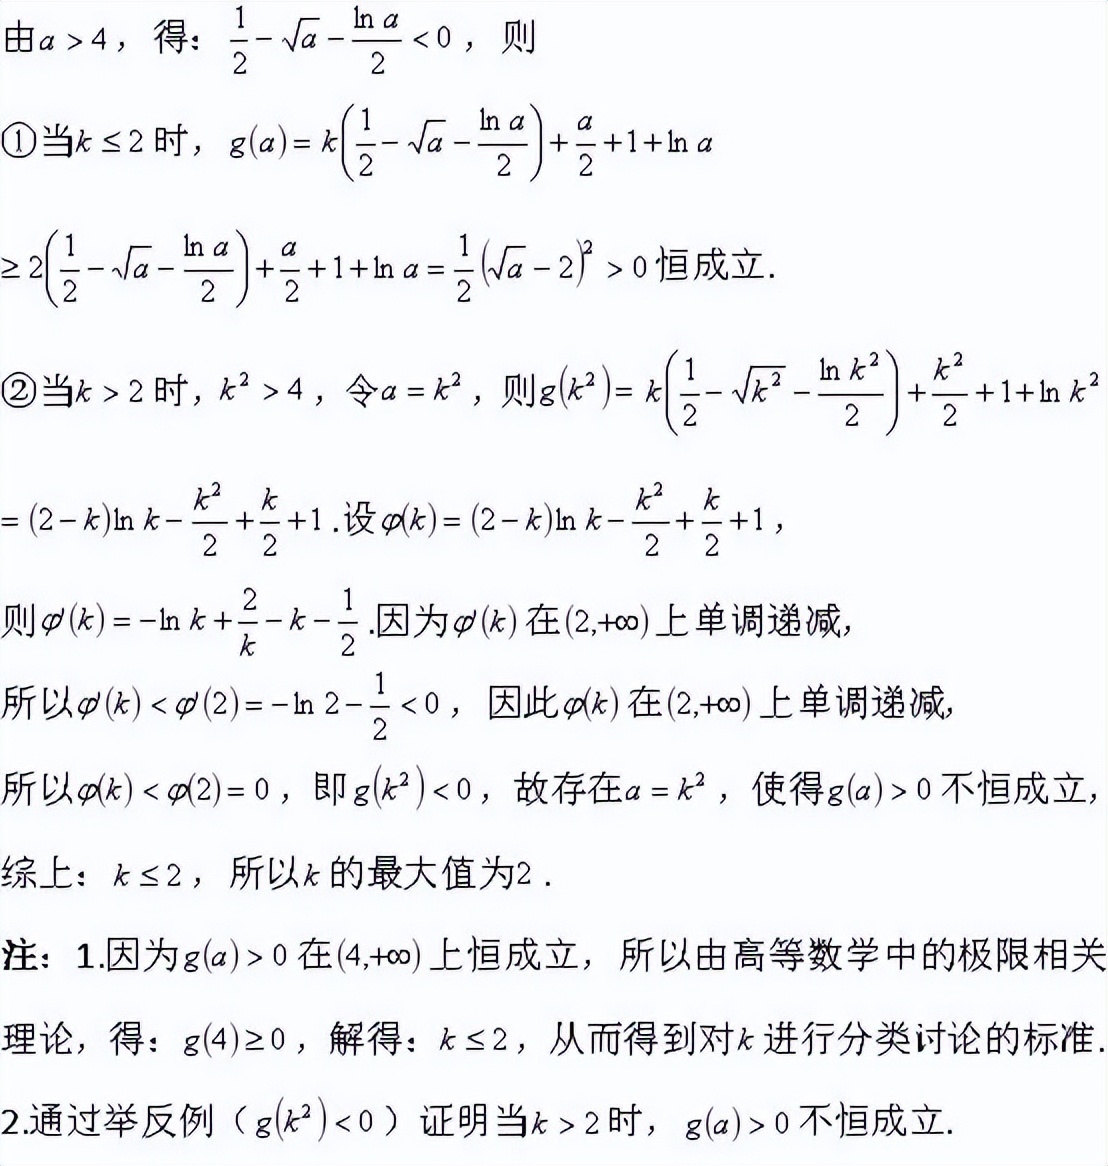 由a > 4，得：1/2 − √a − (ln a)/2 < 0，则
①当k ≤ 2时，g(a) = k(1/2 − √a − (ln a)/2) + a/2 + 1 + ln a
≥ 2(1/2 − √a − (ln a)/2) + a/2 + 1 + ln a = 1/2(√a − 2)² > 0恒成立.
②当k > 2时，k² > 4，令a = k²，则g(k²) = k(1/2 − √k² − (ln k²)/2) + k²/2 + 1 + ln k²
= (2 − k)ln k − k²/2 + k/2 + 1.设φ(k) = (2 − k)ln k − k²/2 + k/2 + 1，
则φ′(k) = −ln k + 2/k − k − 1/2.因为φ′(k)在(2,+∞)上单调递减，
所以φ′(k) < φ′(2) = −ln 2 − 1/2 < 0，因此φ(k)在(2,+∞)上单调递减，
所以φ(k) < φ(2) = 0，即g(k²) < 0，故存在a = k²，使得g(a) > 0不恒成立，
综上：k ≤ 2，所以k的最大值为2.
注：1.因为g(a) > 0在(4,+∞)上恒成立，所以由高等数学中的极限相关
理论，得：g(4) ≥ 0，解得：k ≤ 2，从而得到对k进行分类讨论的标准.
2.通过举反例（g(k²) < 0）证明当k > 2时，g(a) > 0不恒成立.